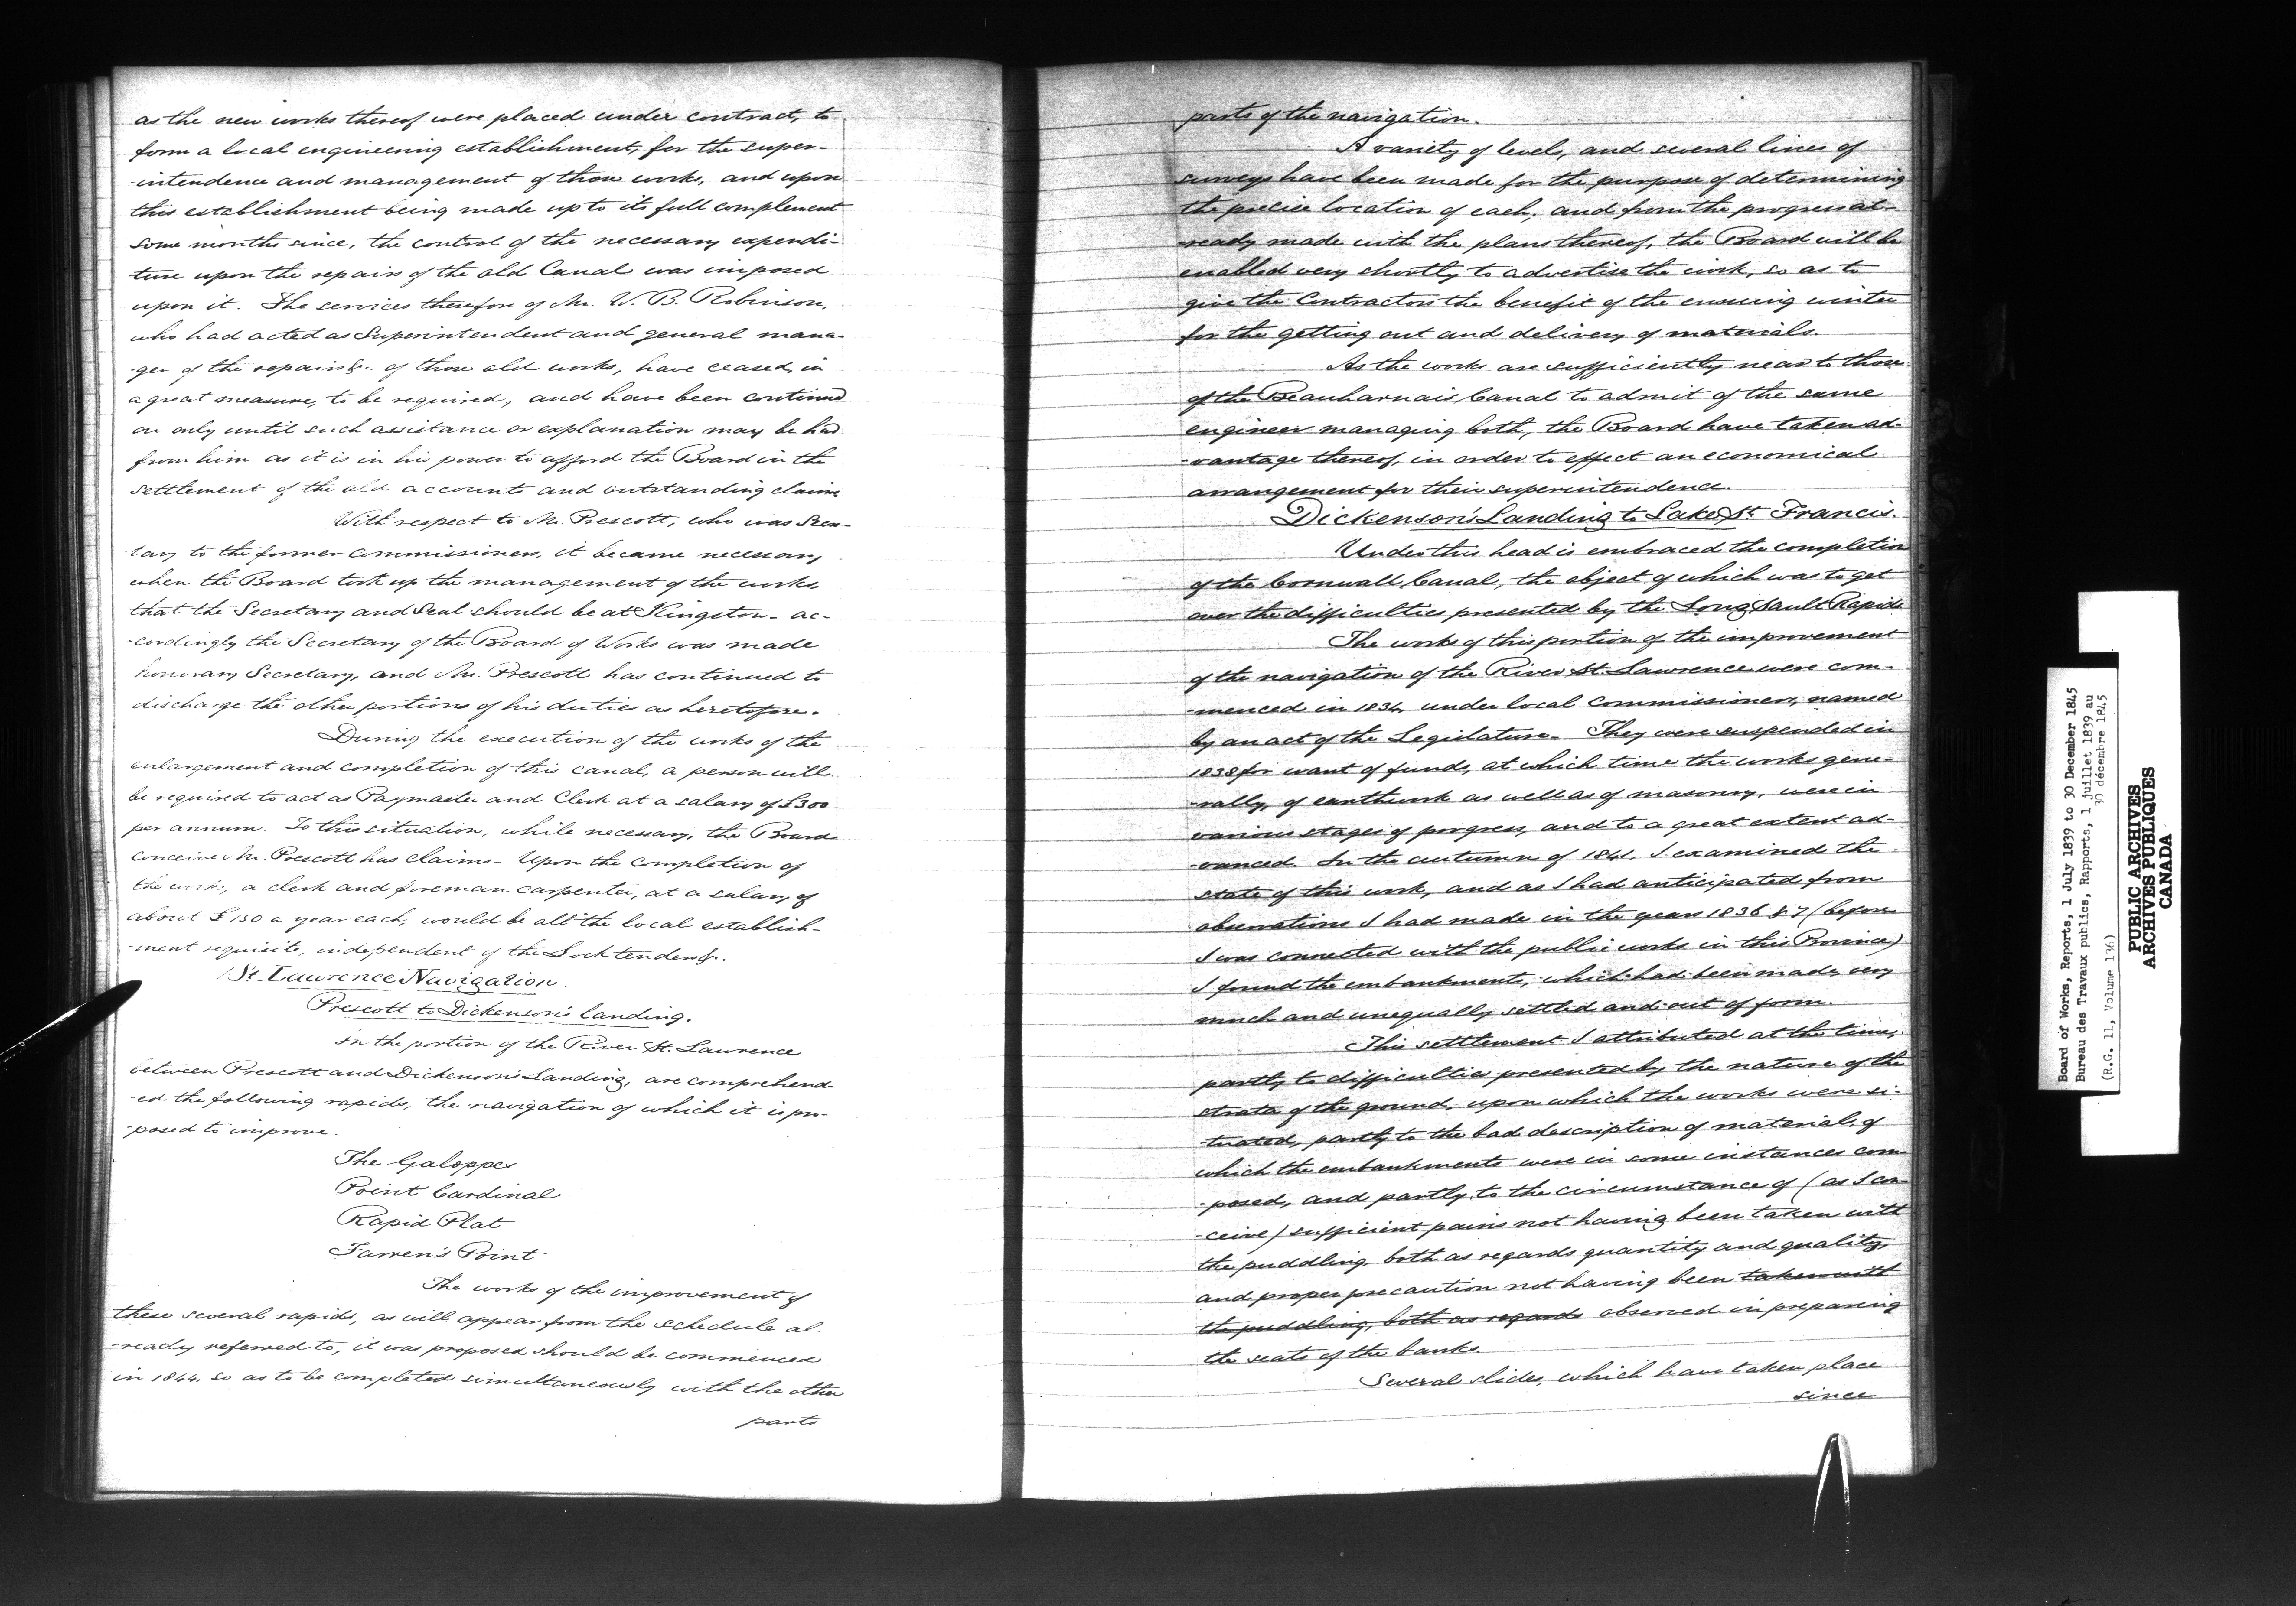 as the new works thereof were placed under contract, to
form a local engineering establishment, for the super-
-intendence and management of those works, and upon
this establishment being made up to its full complement
some months since, the control of the necessary expendi-
ture upon the repairs of the old Canal was imposed
upon it. The services therefore of Mr. W. B. Robinson,
who had acted as Superintendent and general mana-
-ger of the repairs &c. of those old works, have ceased, in
a great measure, to be required, and have been continued
on only until such assistance or explanation may be had
from him as it is in his power to afford the Board in the
settlement of the old accounts and outstanding claims
With respect to Mr. Prescott, who was Secre-
tary to the former Commissioners, it became necessary
when the Board took up the management of the works,
that the Secretary and Seal should be at Kingston - ac-
-cordingly the Secretary of the Board of Works was made
honorary Secretary, and Mr. Prescott has continued to
discharge the other portions of his duties as heretofore.
During the execution of the works of the
enlargement and completion of this canal, a person will
be required to act as Paymaster and Clerk at a salary of £300
per annum. To this situation, while necessary, the Board
conceive Mr. Prescott has claims - Upon the completion of
the work, a clerk and foreman carpenter, at a salary of
about £150 a year each, would be all the local establish-
-ment requisite, independent of the Lock tenders &c.
St Lawrence Navigation.
Prescott to Dickenson's Landing.
In the portion of the River St. Lawrence
between Prescott and Dickenson's Landing, are comprehend-
-ed the following rapids, the navigation of which it is pro-
-posed to improve.
The Galoppes
Point Cardinal
Rapid Plat
Farren's Point
The works of the improvement of
these several rapids, as will appear from the schedule al-
-ready referred to, it was proposed should be commenced
in 1844, so as to be completed simultaneously with the other
parts
parts of the navigation.
A variety of levels, and several lines of
surveys have been made for the purpose of determining
the precise location of each, and from the progress al-
-ready made with the plans thereof, the Board will be
enabled very shortly to advertise the work, so as to
give the Contractors the benefit of the ensuing winter
for the getting out and delivery of materials.
As the works are sufficiently near to those
of the Beauharnais Canal to admit of the same
engineer managing both, the Board have taken ad-
-vantage thereof, in order to effect an economical
arrangement for their superintendence.
Dickenson's Landing to Lake St. Francis.
Under this head is embraced the completion
of the Cornwall Canal, the object of which was to get
over the difficulties presented by the Long Sault Rapids
The works of this portion of the improvement
of the navigation of the River St. Lawrence were com-
-menced in 1834 under local Commissioners, named
by an act of the Legislature. They were suspended in
1838 for want of funds, at which time the works gene-
-rally, of earthwork as well as of masonry, were in
various stages of progress, and to a great extent ad-
-vanced. In the autumn of 1841, I examined the
state of this work, and as I had anticipated from
observations I had made in the years 1836 & 7 (before
I was connected with the public works in this Province)
I found the embankments, which had been made, very
much and unequally settled and out of form.
This settlement I attributed at the time,
partly to difficulties presented by the nature of the
strata of the ground, upon which the works were si-
-tuated, partly to the bad description of material, of
which the embankments were in some instances com-
-posed, and partly to the circumstance of (as I con-
-ceive) sufficient pains not having been taken with
the puddling, both as regards quantity and quality,
and proper precaution not having been taken with
the puddling, both as regards observed in preparing
the seats of the banks.
Several slides, which have taken place
since
Board of Works, Reports, 1 July 1839 to 30 December 1845
Bureau des Travaux publics, Rapports, 1 juillet 1839 au
30 décembre 1845
(R.G. 11, Volume 136)
PUBLIC ARCHIVES
ARCHIVES PUBLIQUES
CANADA